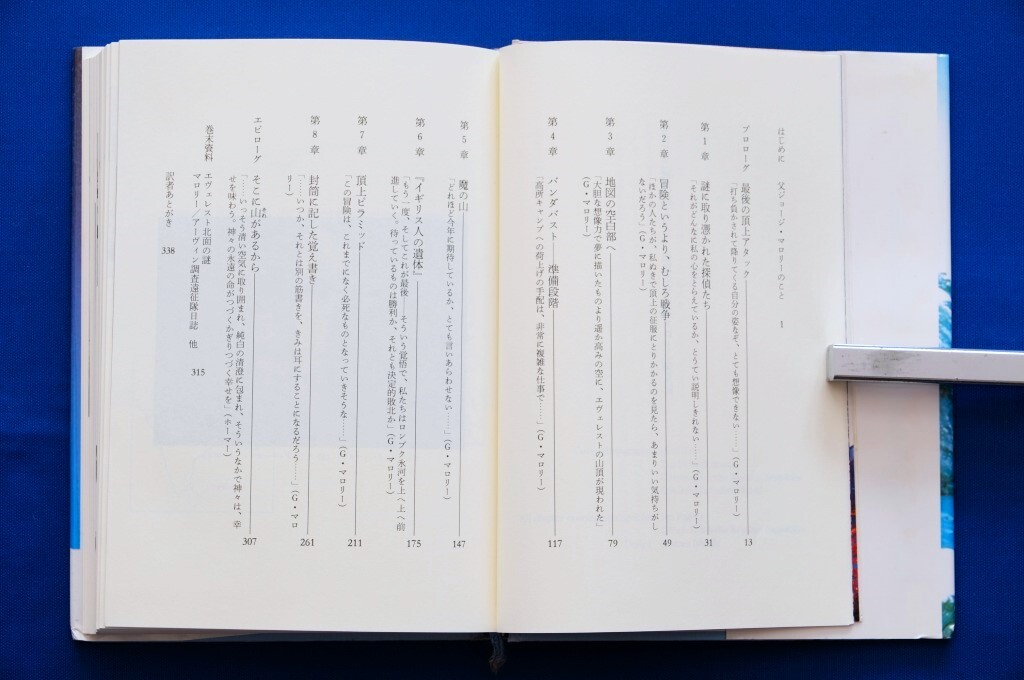 はじめに　父ジョージ・マロリーのこと　1
プロローグ　最後の頂上アタック　13
「打ち負かされて降りてくる自分の姿など、とても想像できない……」(G・マロリー)
第1章　謎に取り憑かれた探偵たち　31
「それがどんなに私の心をとらえているか、とうてい説明しきれない……」(G・マロリー)
第2章　冒険というより、むしろ戦争　49
「ほかの人たちが、私ぬきで頂上の征服にとりかかるのを見たら、あまりいい気持ちがし
ないだろう」(G・マロリー)
第3章　地図の空白部へ　79
「大胆な想像力で夢に描いたものより遥か高みの空に、エヴェレストの山頂が現われた」
(G・マロリー)
第4章　バンダバスト　準備段階　117
「高所キャンプへの荷上げの手配は、非常に複雑な仕事で……」(G・マロリー)
第5章　魔の山　147
「どれほど今年に期待しているか、とても言いあらわせない……」(G・マロリー)
第6章　『イギリス人の遺体』　175
「もう一度、そしてこれが最後　そういう覚悟で、私たちはロンブク氷河を上へ上へ前
進していく。待っているものは勝利か、それとも決定的敗北か」(G・マロリー)
第7章　頂上ピラミッド　211
「この冒険は、これまでになく必死なものとなっていきそうな……」(G・マロリー)
第8章　封筒に記した覚え書き　261
「……いつか、それとは別の筋書きを、きみは耳にすることになるだろう……」(G・マロ
リー)
エピローグ　そこに山があるから　307
「……いっそう清い空気に取り囲まれ、純白の清澄に包まれ、そういうなかで神々は、幸
せを味わう。神々の永遠の命がつづくかぎりつづく幸せを」(ホーマー)
巻末資料　エヴェレスト北面の謎
マロリー/アーヴィン調査遠征隊日誌　他　315
訳者あとがき　338